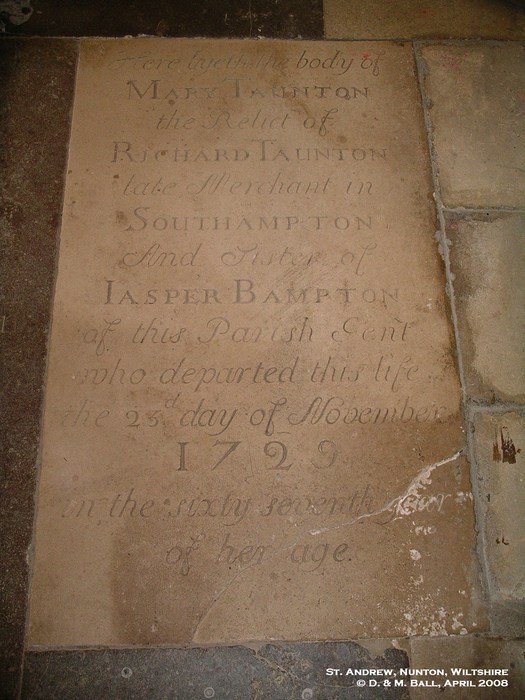 Here lyeth the body of
MARY TAUNTON
the Relict of
RICHARD TAUNTON
late Merchant in
SOUTHAMPTON
And Sister of
IASPER BAMPTON
of this Parish Gent
who departed this life
the 23d day of November
1729
in the sixty seventh year
of her age.
ST. ANDREW, NUNTON, WILTSHIRE
© D. & M. BALL, APRIL 2008